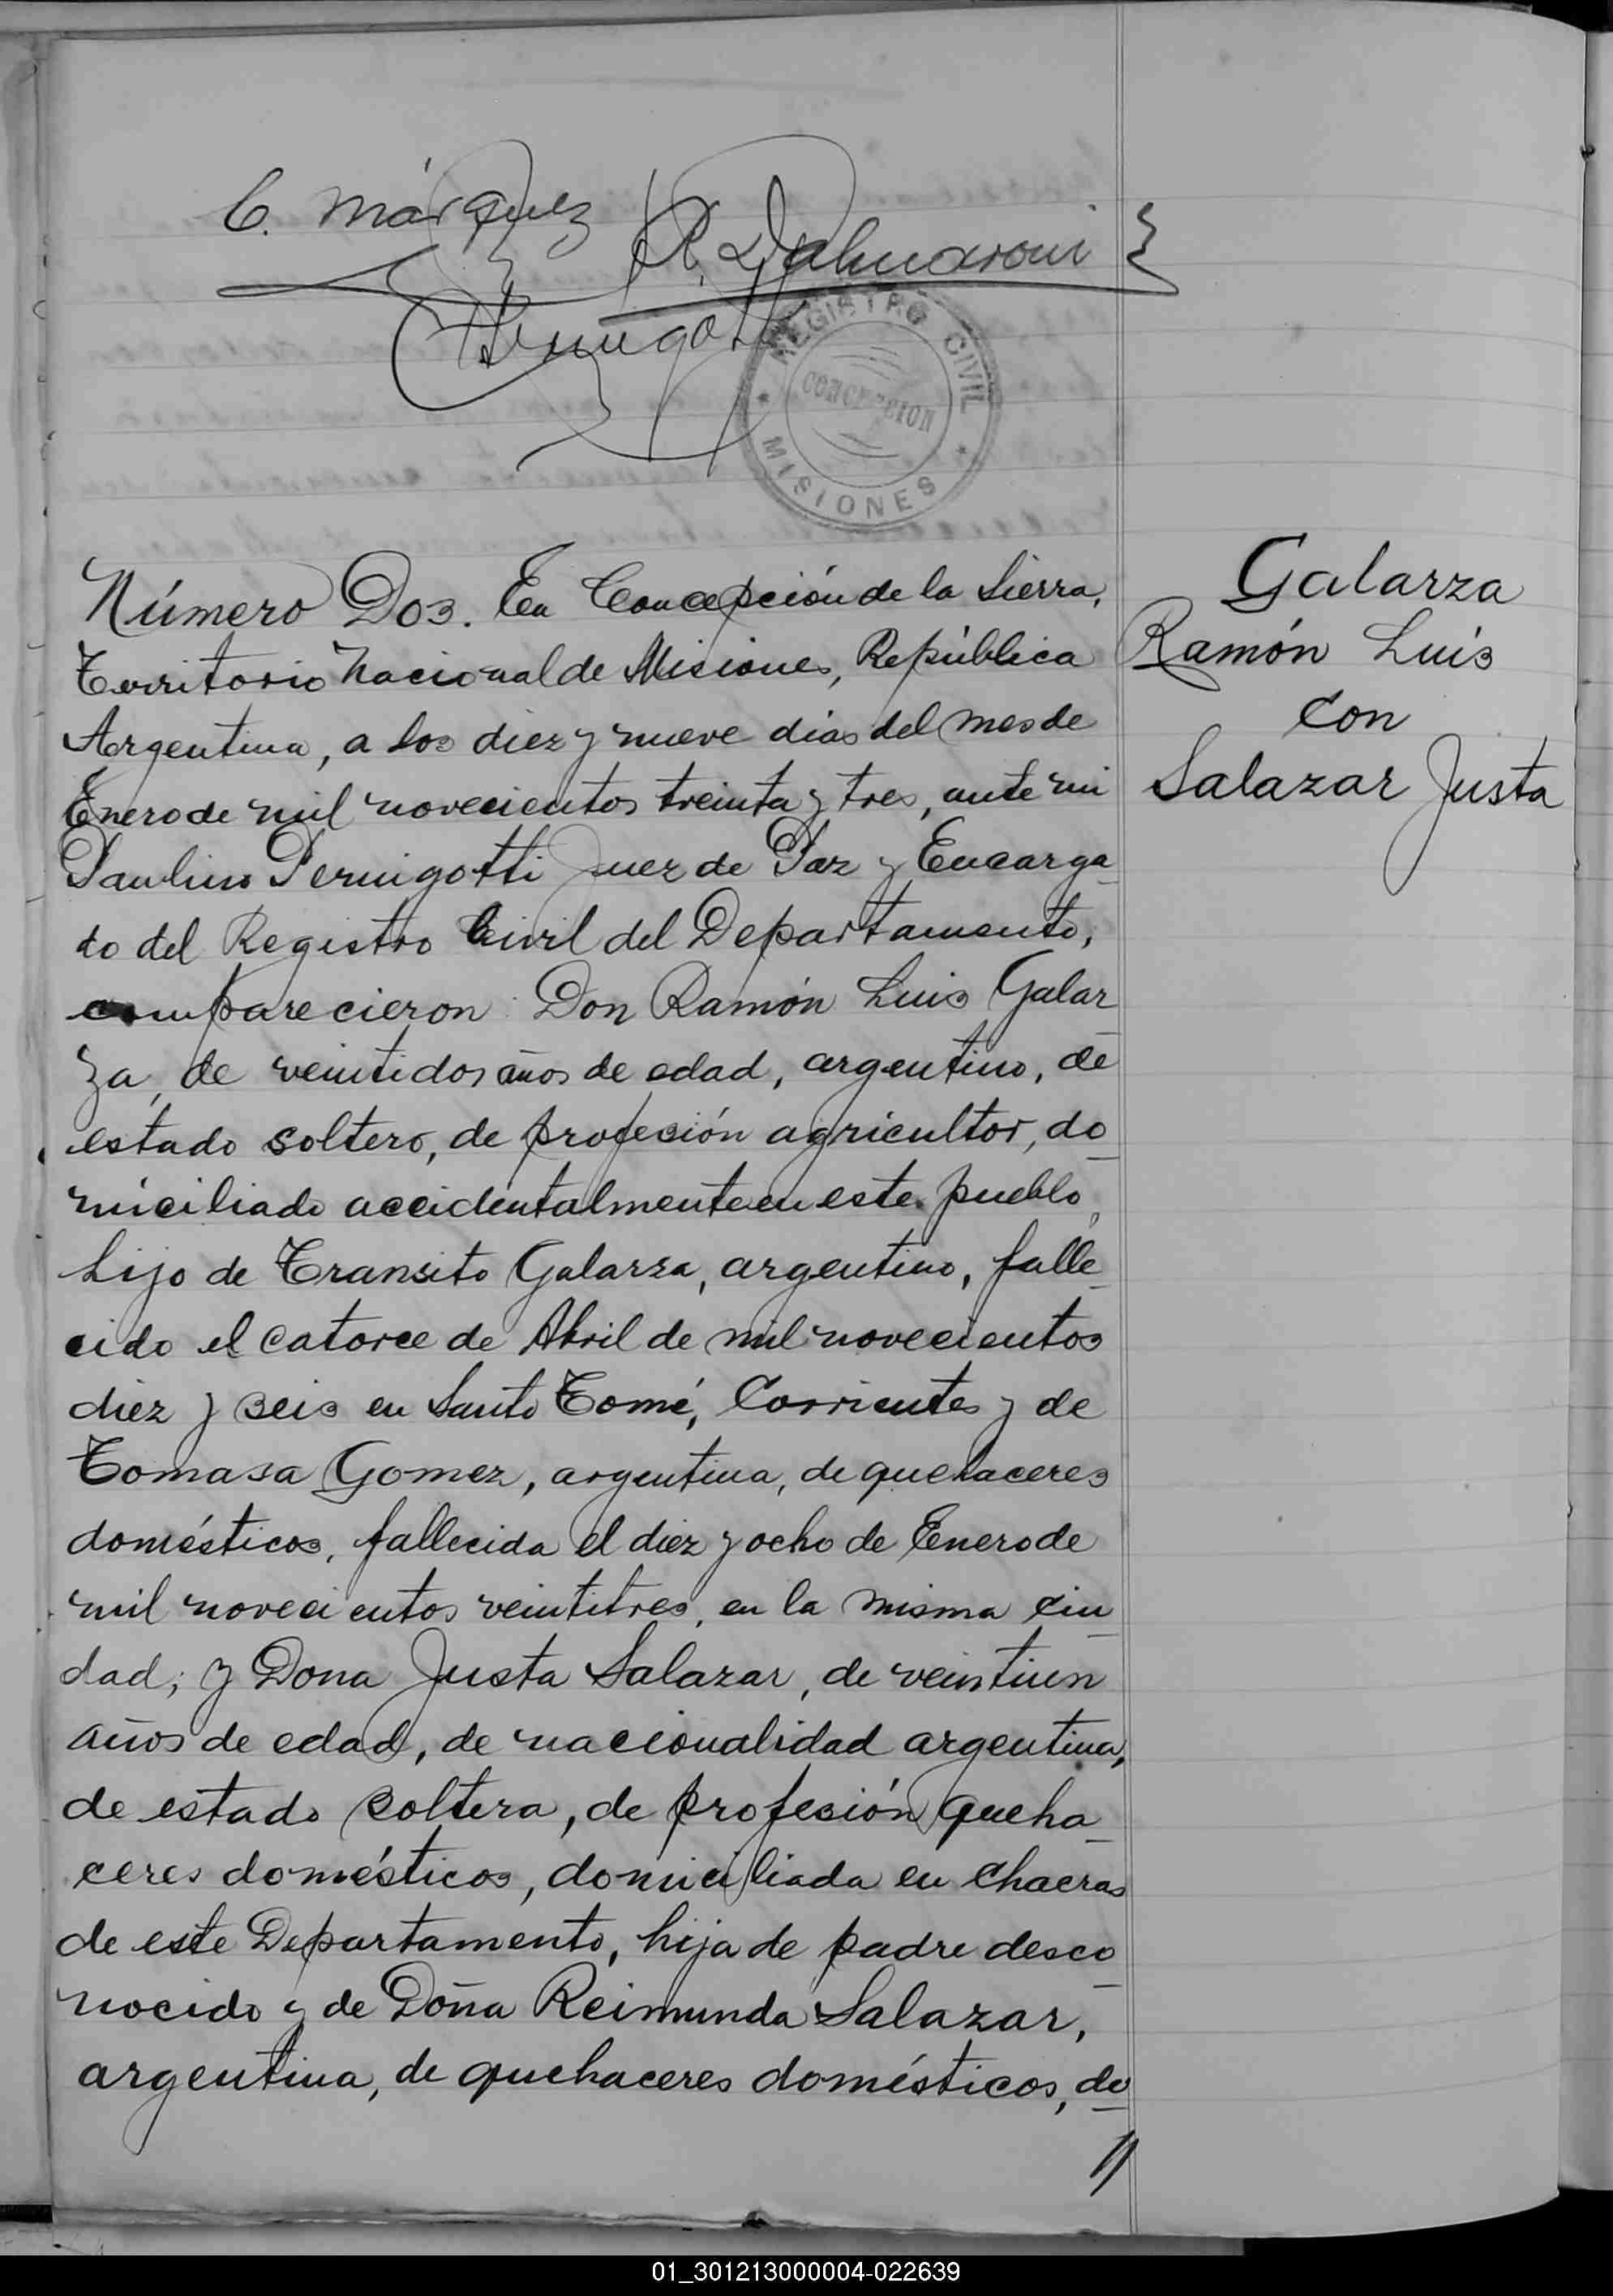 C. Márquez
REGISTRO CIVIL
CONCEPCION
MISIONES
Número Dos. En Concepción de la Sierra,
Territorio Nacional de Misiones, República
Argentina, a los diez y nueve dias del mes de
Enero de mil novecientos treinta y tres, ante mi
Paulino Pernigotti Juez de Paz y Encarga
do del Registro Civil del Departamento,
comparecieron: Don Ramón Luis Galar
za, de veintidos años de edad, argentino, de
estado soltero, de profesión agricultor, do
miciliado accidentalmente en este pueblo,
hijo de Transito Galarza, argentino, falle
cido el catorce de Abril de mil novecientos
diez y seis en Santo Tomé, Corrientes y de
Tomasa Gomez, argentina, de quehaceres
domésticos, fallecida el diez y ocho de Enero de
mil novecientos veintitres, en la misma ciu
dad; y Dona Justa Salazar, de veintiun
años de edad, de nacionalidad argentina,
de estado soltera, de profesión queha
ceres domésticos, domiciliada en chacras
de este Departamento, hija de padre desco
nocido y de Doña Reimunda Salazar,
argentina, de quehaceres domésticos, do
Galarza
Ramón Luis
con
Salazar Justa
01_301213000004-022639